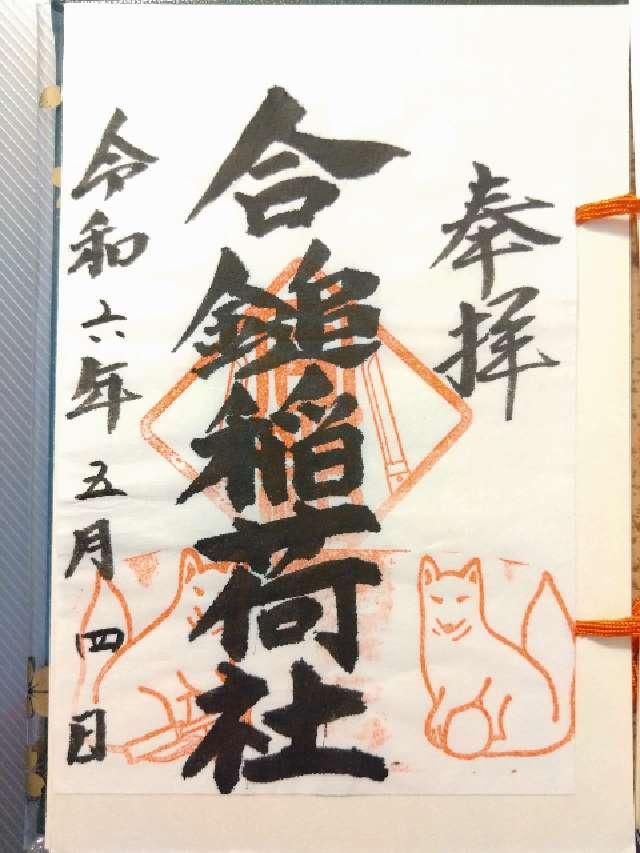 奉拝
合鎚稲荷社
令和六年五月四日